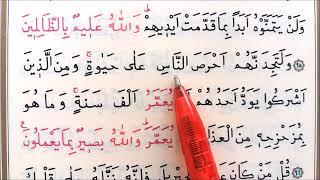 وَلَنْ يَتَمَنَّوْهُ اَبَدًا بِمَا قَدَّمَتْ اَيْدِيهِمْ وَاللّٰهُ عَلِيمٌ بِالظَّالِمِينَ
وَلَتَجِدَنَّهُمْ اَحْرَصَ النَّاسِ عَلٰى حَيٰوةٍ وَمِنَ الَّذِينَ
اَشْرَكُوا يَوَدُّ اَحَدُهُمْ يُعَمَّرُ اَلْفَ سَنَةٍ وَمَا هُوَ
بِمُزَحْزِحِهِ مِنَ الْعَذَا يُعَمَّرَ وَاللّٰهُ بَصِيرٌ بِمَا يَعْمَلُونَ
قُلْ مَنْ كَانَ فَاِنَّهُ نَزَّلَهُ عَلٰى قَلْبِكَ